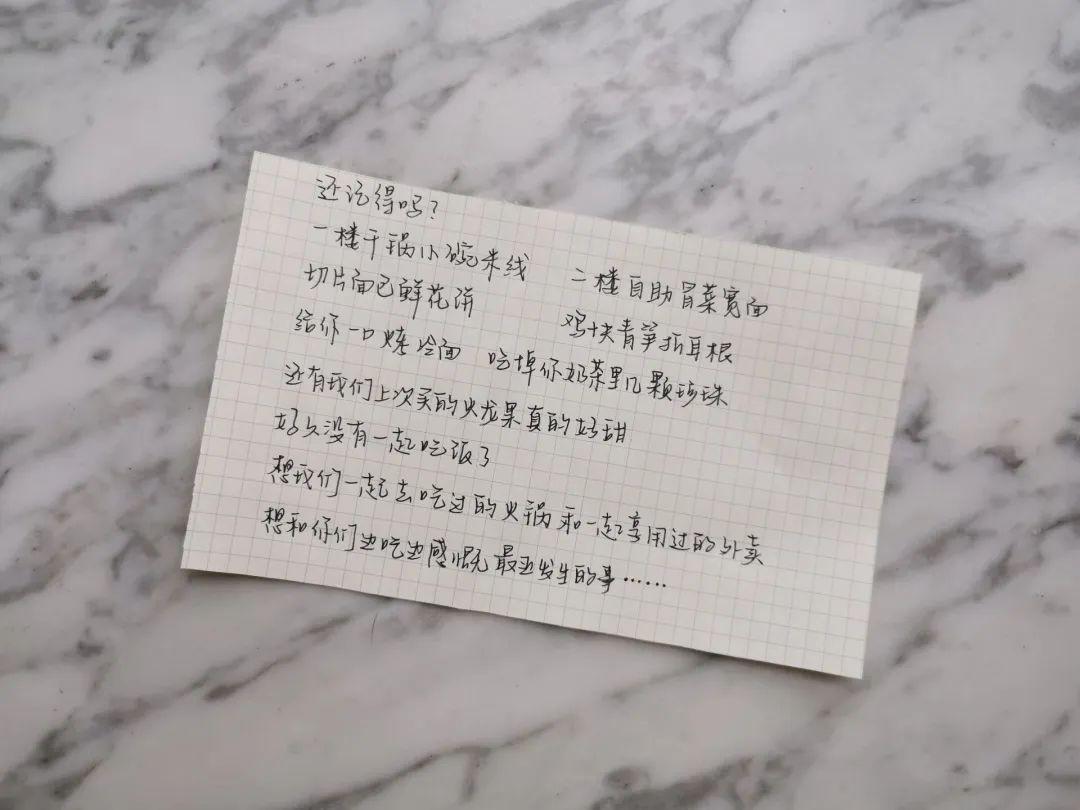 还记得吗？
一楼干锅小碗米线 二楼自助冒菜宽面
切片面包鲜花饼 鸡块青笋折耳根
给你一口烤冷面 吃掉你奶茶里几颗珍珠
还有我们上次买的火龙果真的好甜
好久没有一起吃饭了
想我们一起去吃过的火锅和一起享用过的外卖
想和你们边吃边感慨最近发生的事……